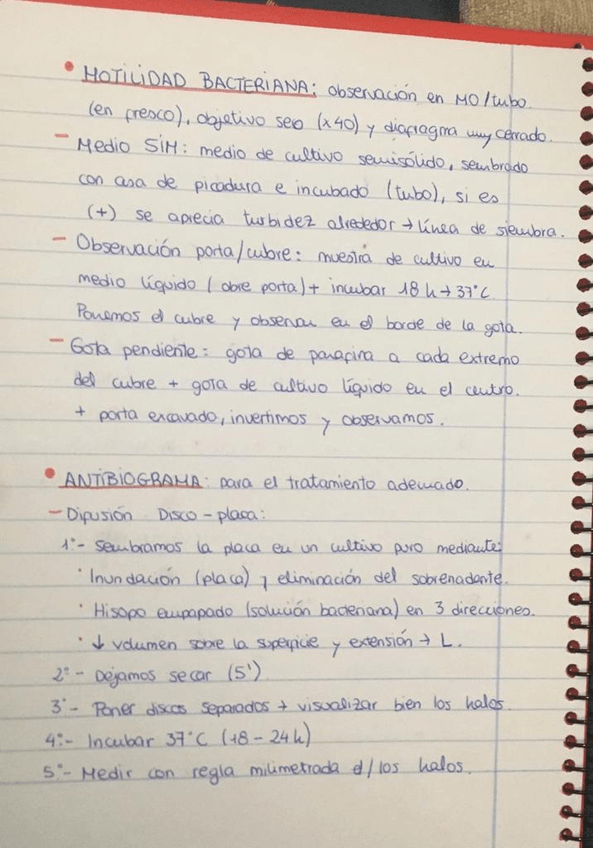 • MOTILIDAD BACTERIANA: observación en MO/tubo
(en fresco), objetivo seco (x40) y diafragma muy cerrado.
- Medio SIM: medio de cultivo semisólido, sembrado
con asa de picadura e incubado (tubo), si es
(+) se aprecia turbidez alrededor → línea de siembra.
- Observación porta/cubre: muestra de cultivo en
medio líquido (obre porta) + incubar 18 h → 37°C
Ponemos el cubre y observar en el borde de la gota.
- Gota pendiente: gota de parafina a cada extremo
del cubre + gota de cultivo líquido en el centro.
+ porta excavado, invertimos y observamos.
• ANTIBIOGRAMA: para el tratamiento adecuado.
- Difusión Disco-placa:
1º- Sembramos la placa en un cultivo puro mediante:
· Inundación (placa) y eliminación del sobrenadante.
· Hisopo empapado (solución bacteriana) en 3 direcciones.
· ↓ volumen sobre la superficie y extensión → L.
2º- Dejamos secar (5')
3º- Poner discos separados → visualizar bien los halos.
4º- Incubar 37°C (18-24h)
5º- Medir con regla milimetrada d/los halos.